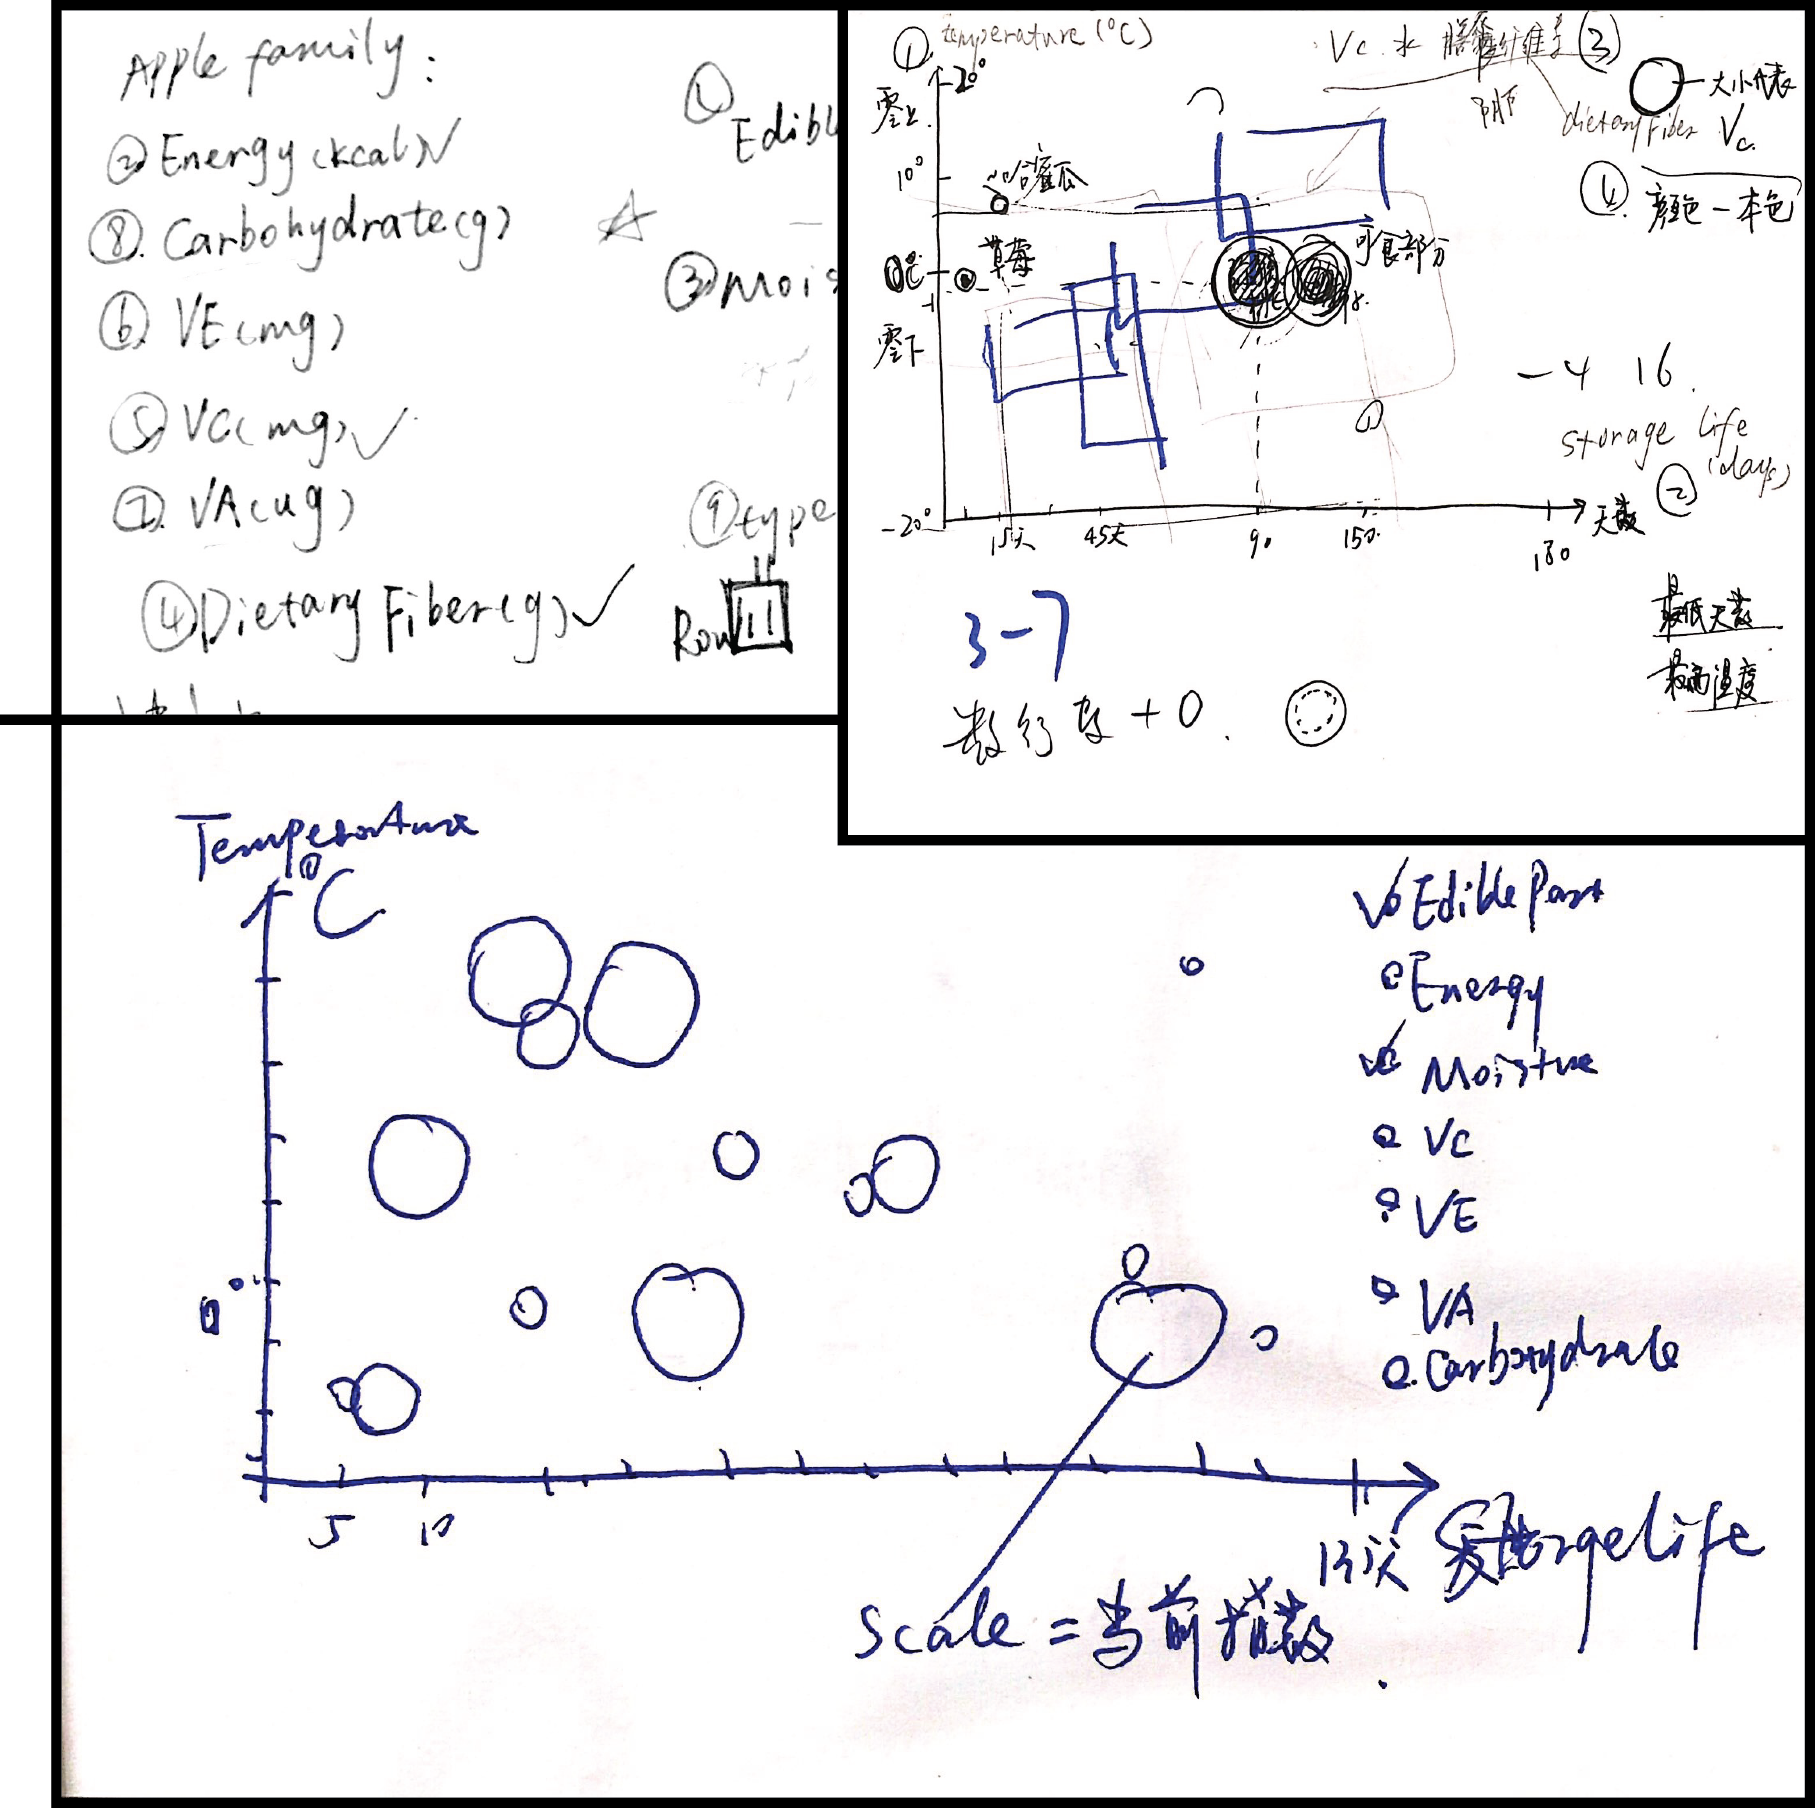 Apple family:
② Energy (kcal) ✓
⑧. Carbohydrate(g)
⑥ VE(mg)
⑤ VC(mg) ✓
⑦. VA(ug)
④ Dietary Fiber(g) ✓
①
Edibl
③ Mois
⑨ type
Row
① temperature (°C)
Vc. 水 膳食纤维素 ③
大小代表
Vc.
dietary Fiber
④ 颜色一本色
20°
零上
10°
哈蜜瓜
0℃
草莓
可食部分
零下
①
-4 16.
storage life
(days)
②
-20°
15天 45天 90 150 180
天数
最低天数
最高温度
3-7
数行数+0.
Temperature
℃
0°
5 10
Storgelife
Scale = 当前指数
Edible Part
Energy
Moisture
VC
VE
VA
Carbohydrate